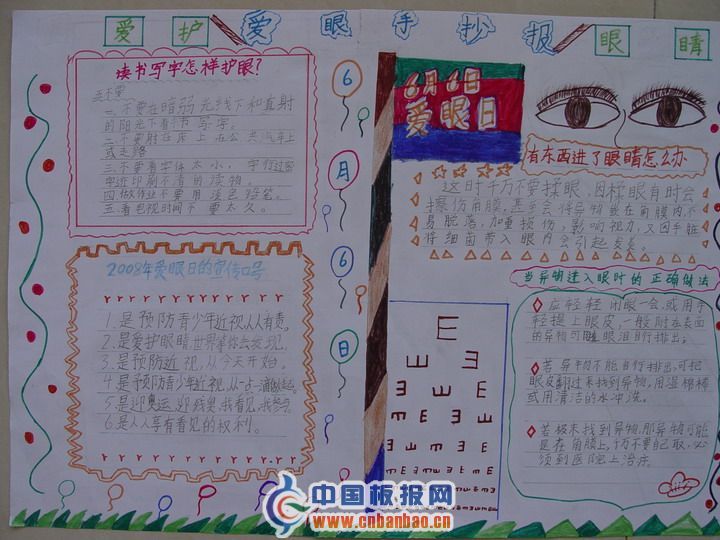 爱护爱眼手抄报眼睛
读书写字怎样护眼?
五不要
一不要在暗弱光线下和直射
的阳光下看书写字。
二不要躺在床上在公共汽车上
或走路
三不要看字体太小,字行过密
字迹印刷不清的读物。
四做作业不要用淡色铅笔。
五看电视时间不要太久。
6
月
6
日
2008年爱眼日的宣传口号
1.是预防青少年近视,人人有责。
2.是爱护眼睛世界等你去发现。
3.是预防近视,从今天开始。
4.是预防青少年近视,从一点一滴做起。
5.是迎奥运,迎残奥,我看见,我参与。
6.是人人享有看见的权利。
6月6日
爱眼日
有东西进了眼睛怎么办
这时千万不要揉眼,因揉眼有时会
擦伤角膜,甚至会将异物嵌在角膜内,不
易脱落,加重损伤,影响视力,又因手脏
将细菌带入眼内会引起发炎。
当异物进入眼时的正确做法
应轻轻闭眼一会,或用手
轻提上眼皮,一般附在表面
的异物可随眼泪自行排出。
若异物不能自行排出,可把
眼皮翻过来找到异物,用湿棉棒
或用清洁的水冲洗。
若极未找到异物,那异物可能
是在角膜上,切不要自己取,必
须到医院上治疗。
E
中国板报网
www.cnbanbao.cn